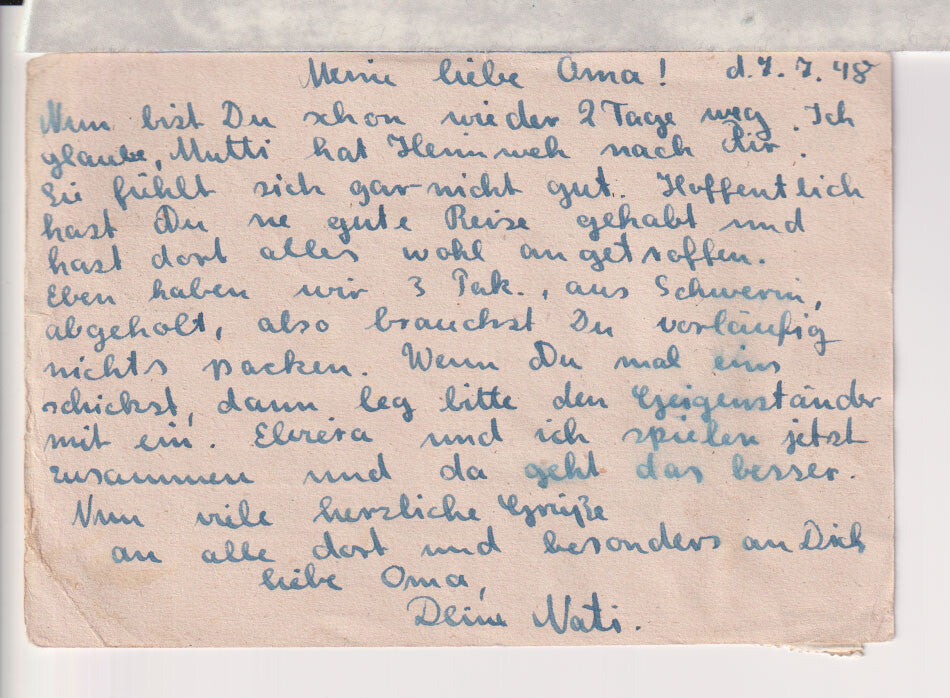 Meine liebe Oma! d. 7.7.48
Nun bist Du schon wieder 2 Tage weg. Ich
glaube, Mutti hat Heimweh nach Dir.
Sie fühlt sich gar nicht gut. Hoffentlich
hast Du ne gute Reise gehabt und
hast dort alles wohl angetroffen.
Eben haben wir 3 Pak., aus Schwerin,
abgeholt, also brauchst Du vorläufig
nichts packen. Wenn Du mal eins
schickst, dann leg bitte den Geigenständer
mit ein. und ich spielen jetzt
zusammen und da geht das besser.
Nun viele herzliche Grüße
an alle dort und besonders an Dich
liebe Oma,
Deine Nati.